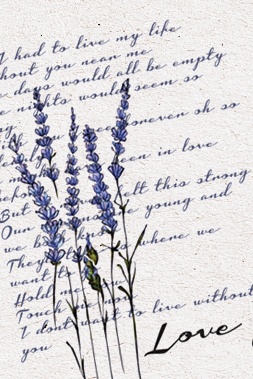 I had to live my life
hout you near me
days would all be empty
nights would seem so
forever oh so
een in love
felt this strong
But
Our young and
we where we
They
want t
Hold me
Touch
I don't want to live without
you
Love